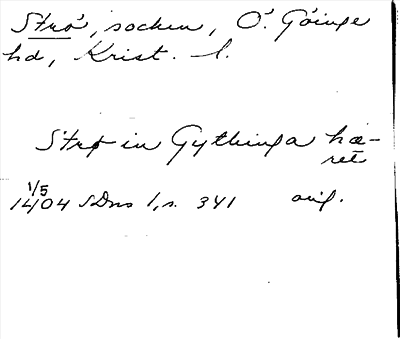 Strö, socken, Ö. Göinge
hd, Krist. l.
Strø in Gythinga hæ-
ret
1/5
1404 SDns 1, s. 341 orig.